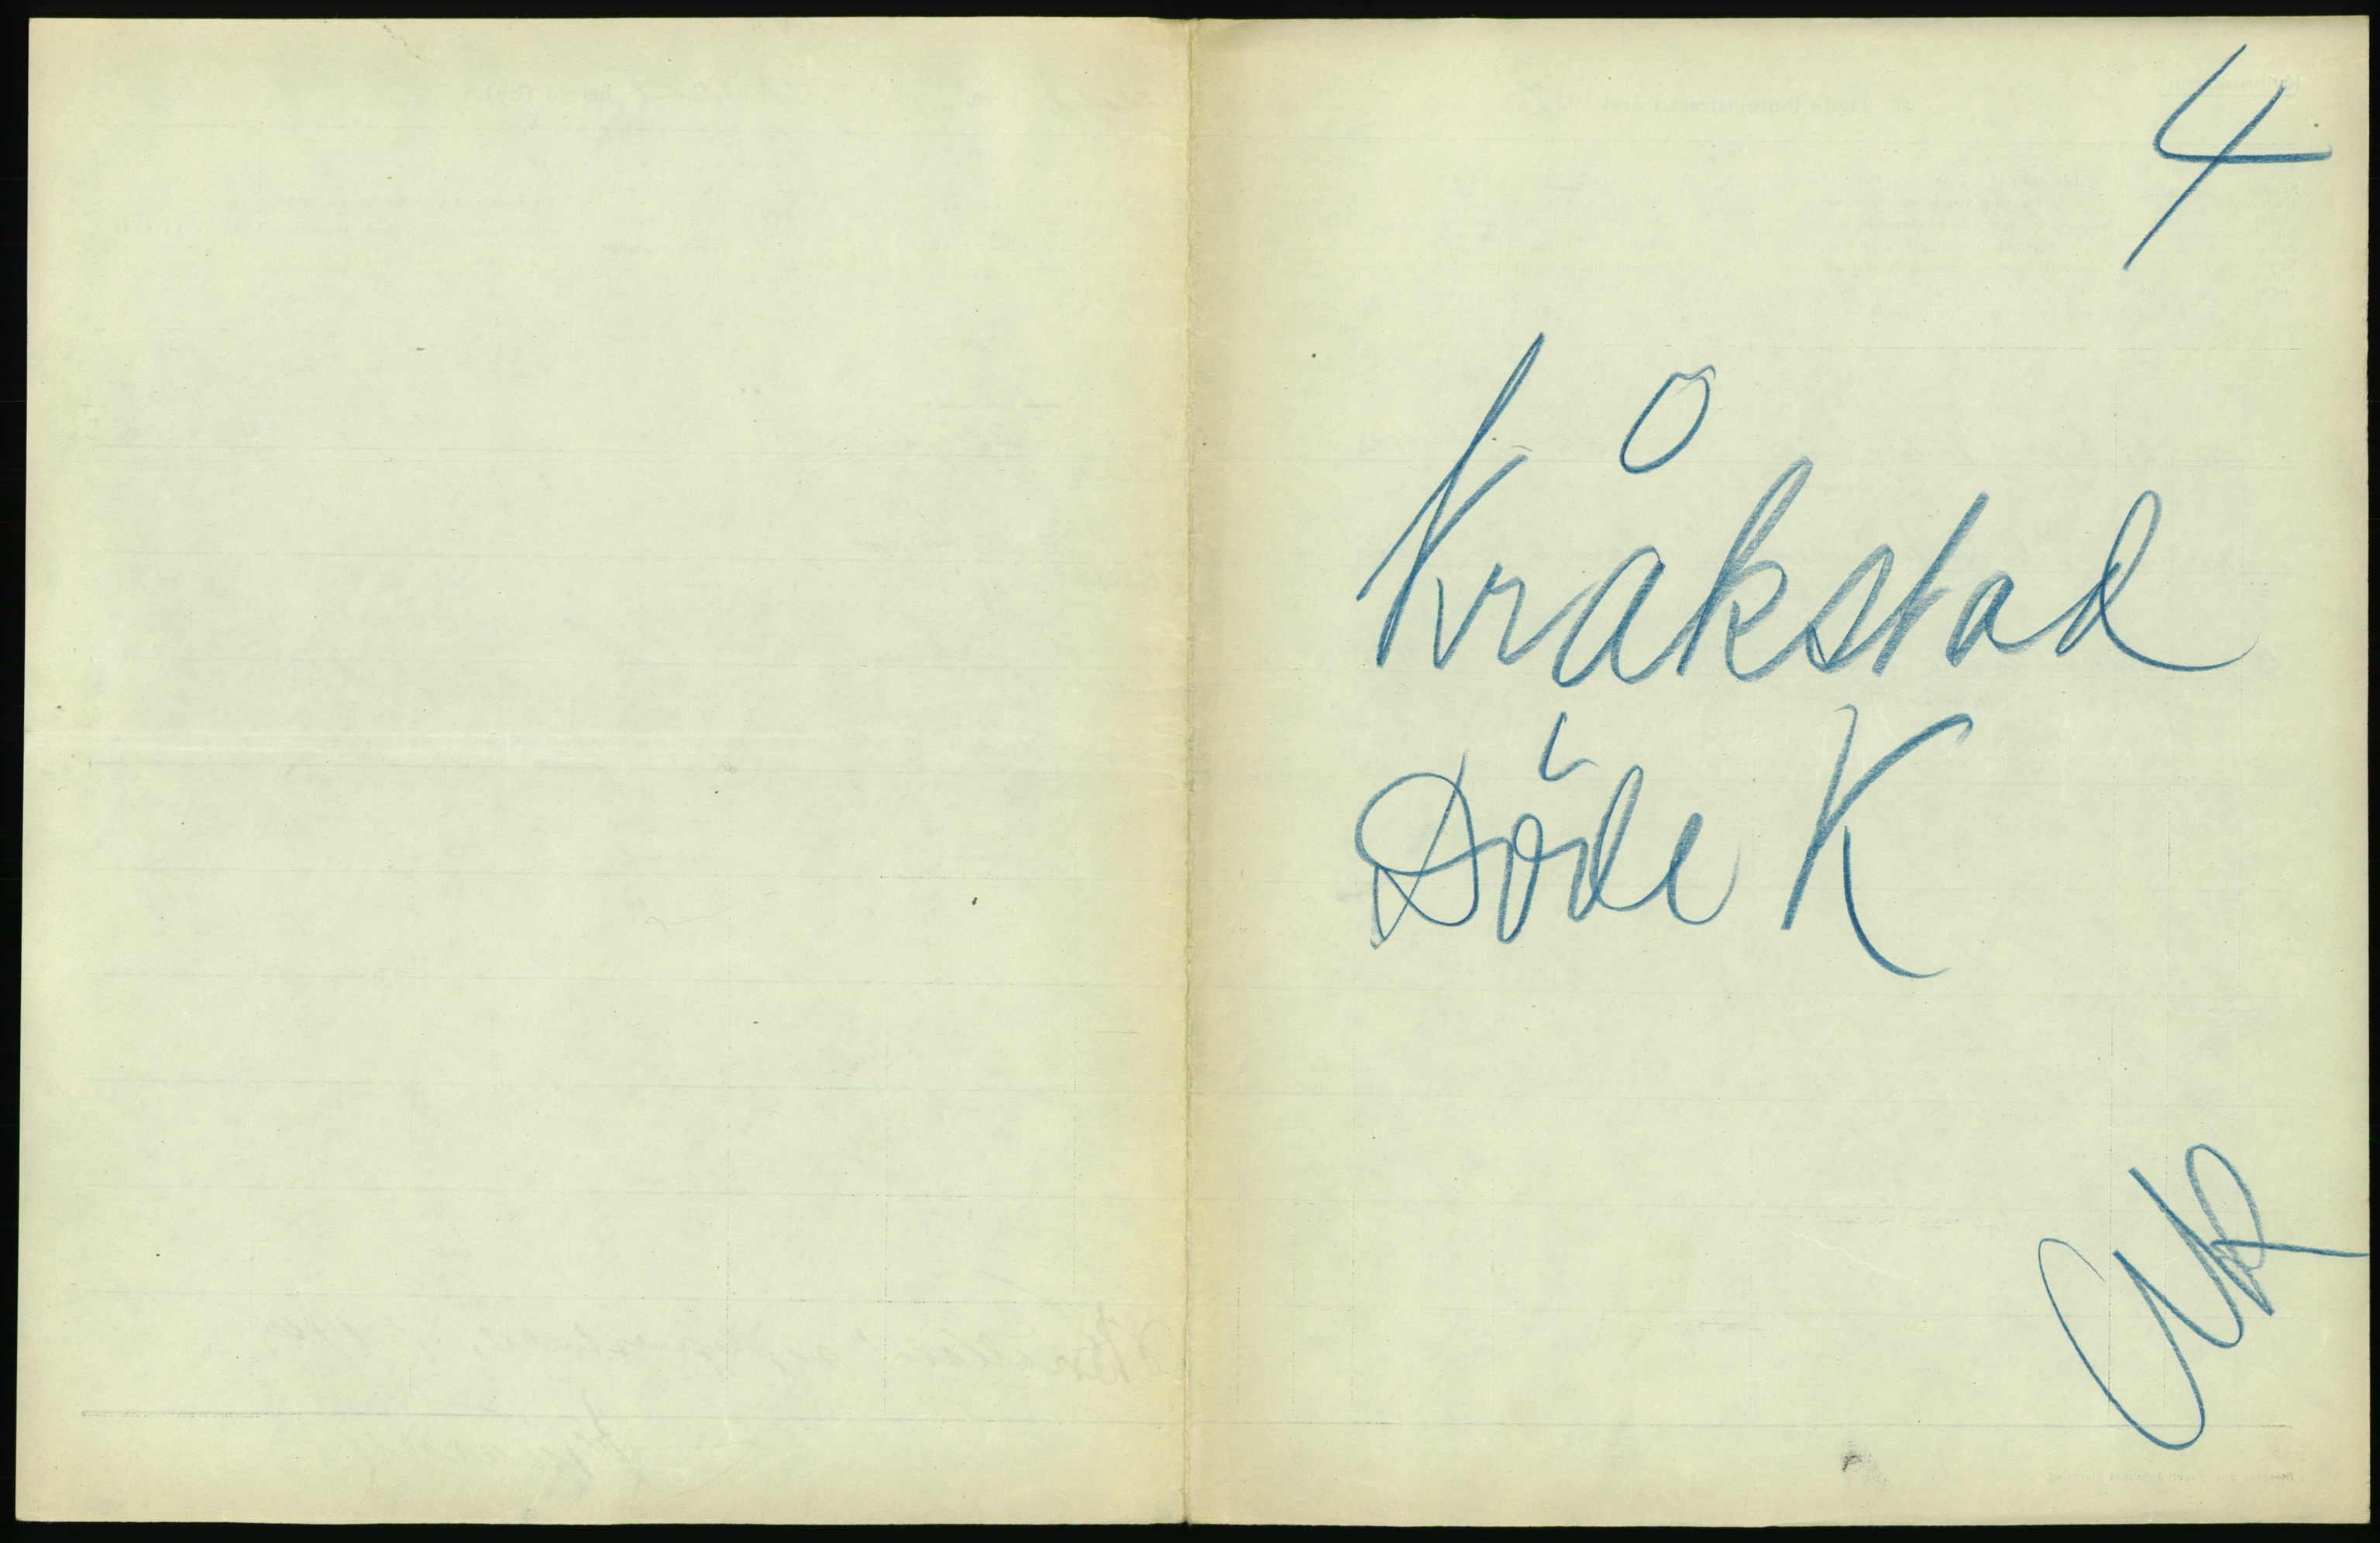 4
Kråkstad
Döde K